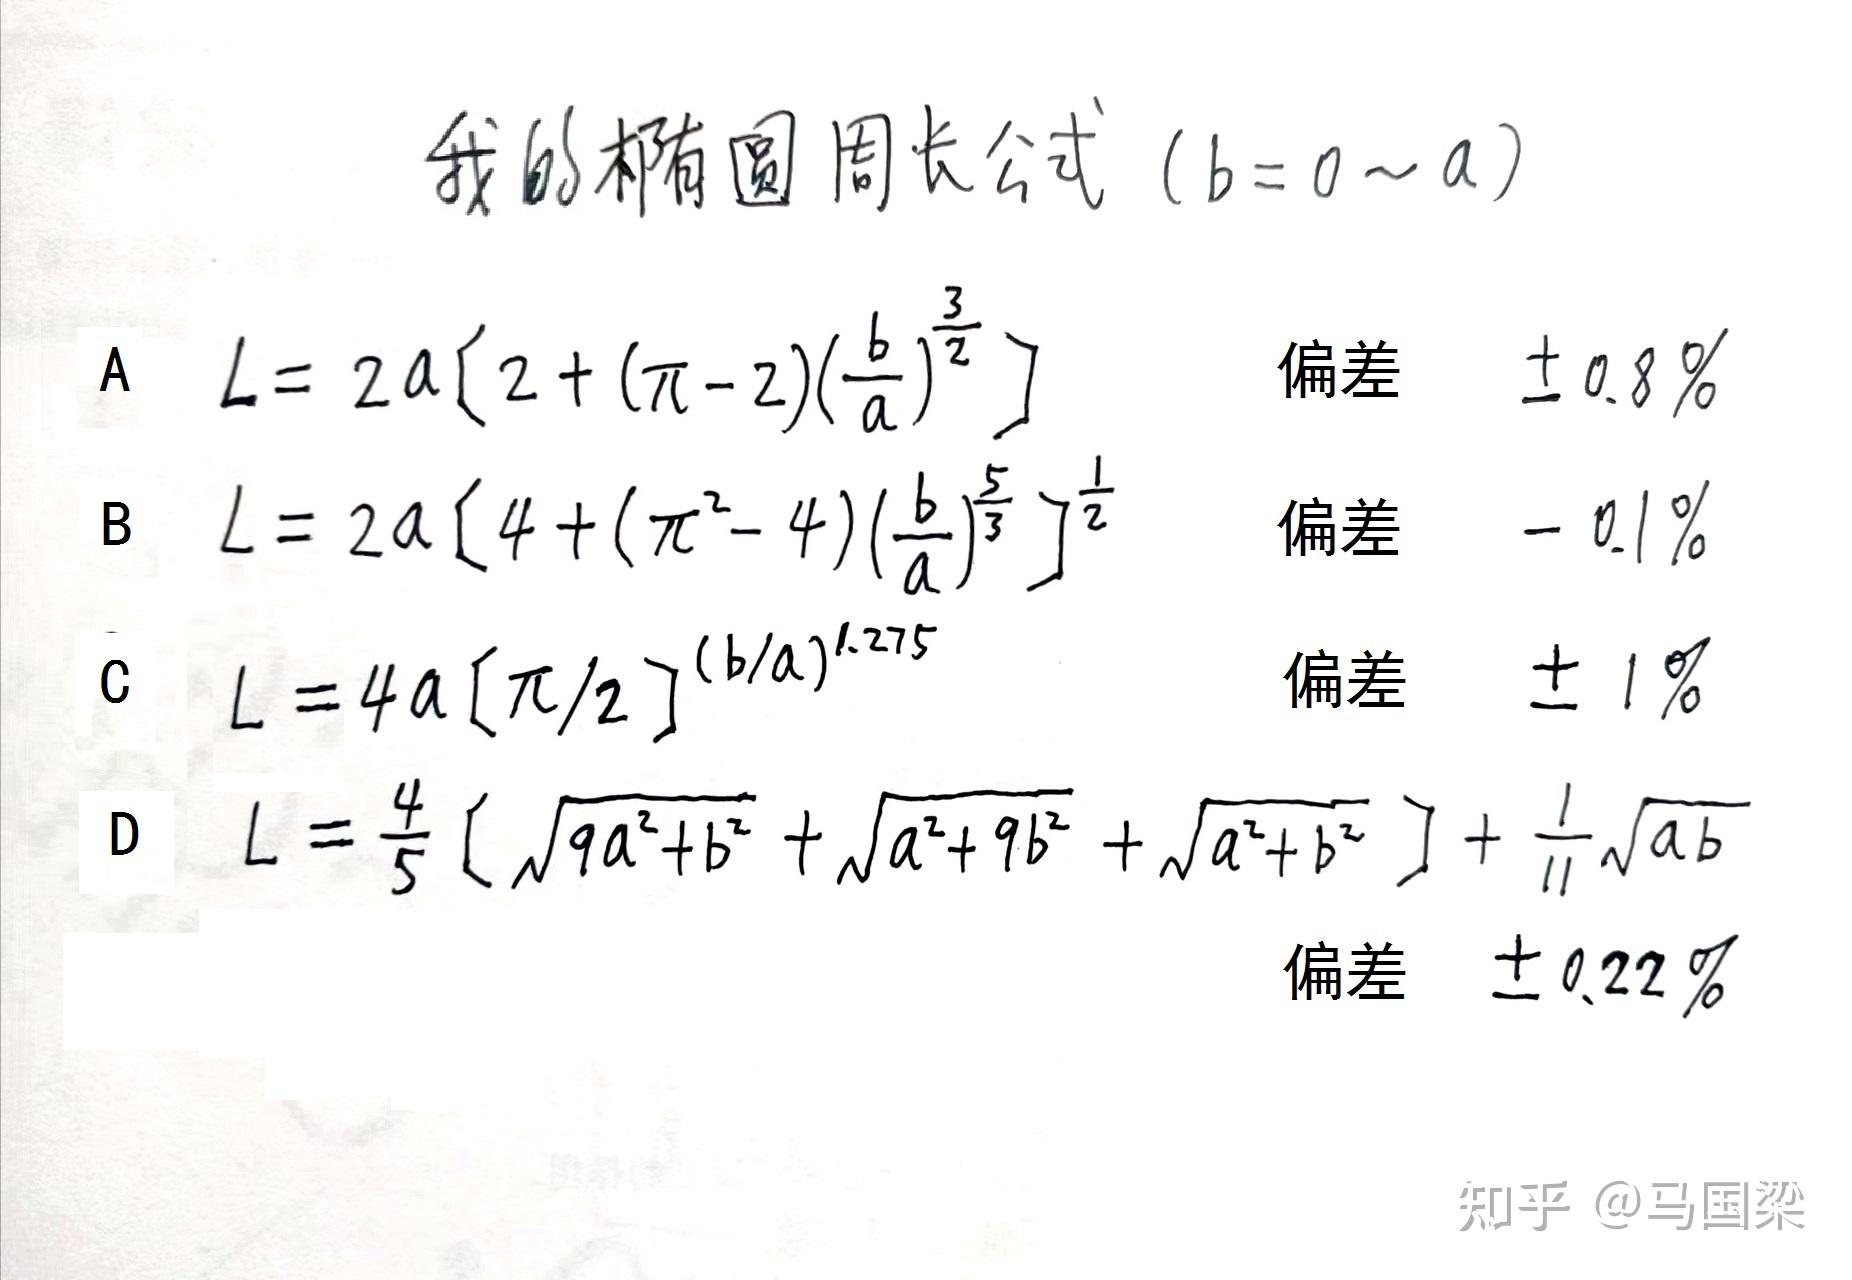 我的椭圆周长公式（b=0～a）
A L = 2a[2+(π-2)(b/a)^{3/2}] 偏差 ±0.8%
B L = 2a[4+(π²-4)(b/a)^{5/3}]^{1/2} 偏差 -0.1%
C L = 4a[π/2]^{(b/a)^{1.275}} 偏差 ±1%
D L = 4/5[√(9a²+b²) + √(a²+9b²) + √(a²+b²)] + 1/11√(ab)
偏差 ±0.22%
知乎 @马国梁